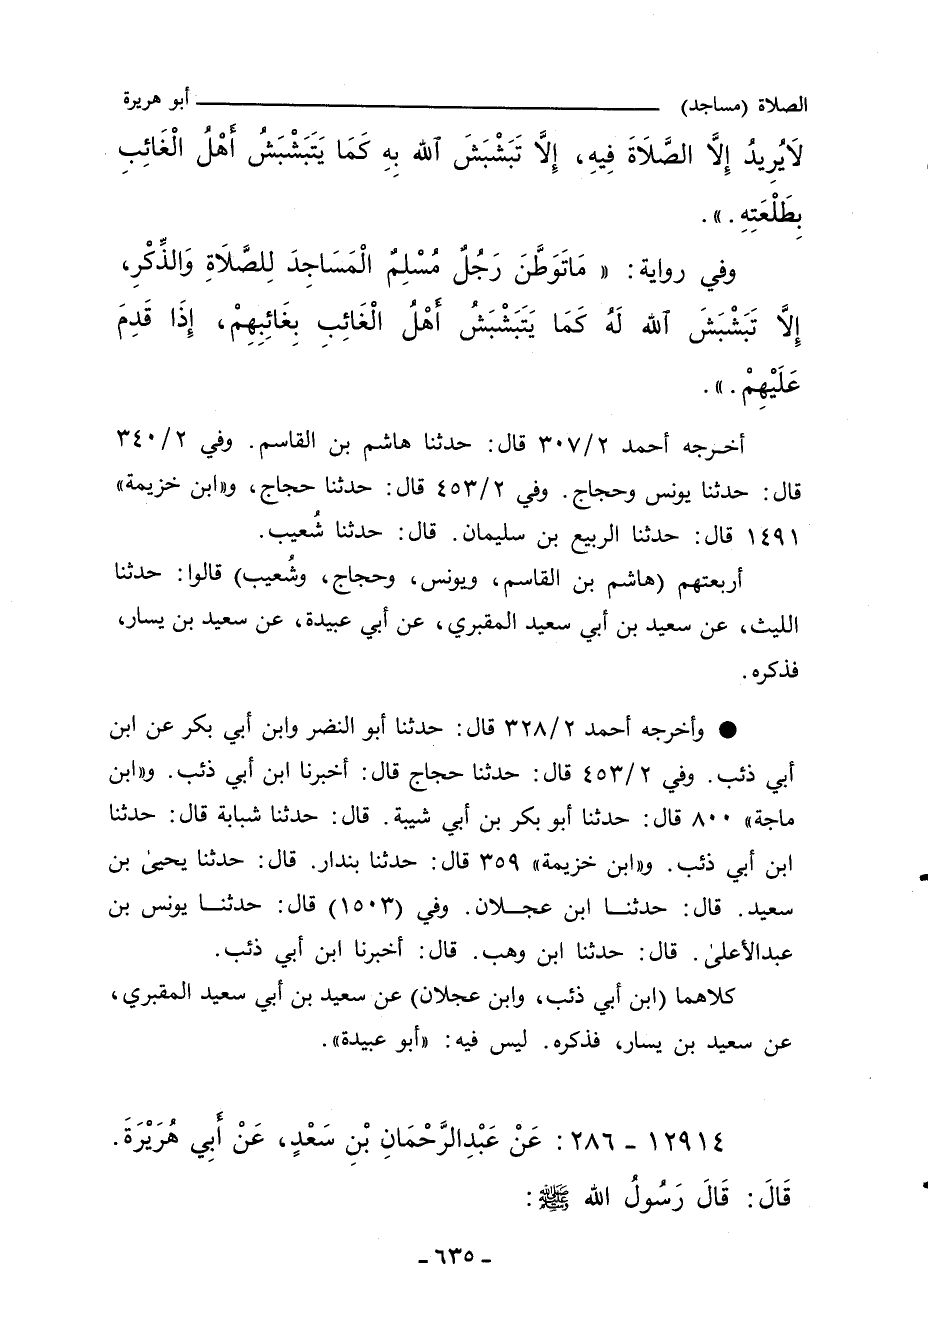 الصلاة (مساجد) ــــــــــــــــــــ أبو هريرة
لَايُرِيدُ إِلَّا الصَّلَاةَ فِيهِ، إِلَّا تَبَشْبَشَ ٱلله بِهِ كَمَا يَتَبَشْبَشُ أَهْلُ الْغَائِبِ
بِطَلْعَتِهِ.».
وفي رواية: « مَاتَوَطَّنَ رَجُلٌ مُسْلِمٌ الْمَسَاجِدَ لِلصَّلَاةِ وَالذِّكْرِ،
إِلَّا تَبَشْبَشَ ٱلله لَهُ كَمَا يَتَبَشْبَشُ أَهْلُ الْغَائِبِ بِغَائِبِهِمْ، إِذَا قَدِمَ
عَلَيْهِمْ.».
أخرجه أحمد ٣٠٧/٢ قال: حدثنا هاشم بن القاسم. وفي ٣٤٠/٢
قال: حدثنا يونس وحجاج. وفي ٤٥٣/٢ قال: حدثنا حجاج، و«ابن خزيمة»
١٤٩١ قال: حدثنا الربيع بن سليمان. قال: حدثنا شُعيب.
أربعتهم (هاشم بن القاسم، ويونس، وحجاج، وشُعيب) قالوا: حدثنا
الليث، عن سعيد بن أبي سعيد المقبري، عن أبي عبيدة، عن سعيد بن يسار،
فذكره.
● وأخرجه أحمد ٣٢٨/٢ قال: حدثنا أبو النضر وابن أبي بكر عن ابن
أبي ذئب. وفي ٤٥٣/٢ قال: حدثنا حجاج قال: أخبرنا ابن أبي ذئب. و«ابن
ماجة» ٨٠٠ قال: حدثنا أبو بكر بن أبي شيبة. قال: حدثنا شبابة قال: حدثنا
ابن أبي ذئب. و«ابن خزيمة» ٣٥٩ قال: حدثنا بندار. قال: حدثنا يحيىٰ بن
سعيد. قال: حدثنا ابن عجلان. وفي (١٥٠٣) قال: حدثنا يونس بن
عبدالأعلىٰ. قال: حدثنا ابن وهب. قال: أخبرنا ابن أبي ذئب.
كلاهما (ابن أبي ذئب، وابن عجلان) عن سعيد بن أبي سعيد المقبري،
عن سعيد بن يسار، فذكره. ليس فيه: «أبو عبيدة».
١٢٩١٤ - ٢٨٦: عَنْ عَبْدِالرَّحْمَانِ بْنِ سَعْدٍ، عَنْ أَبِي هُرَيْرَةَ.
قَالَ: قَالَ رَسُولُ الله ﷺ:
- ٦٣٥ -